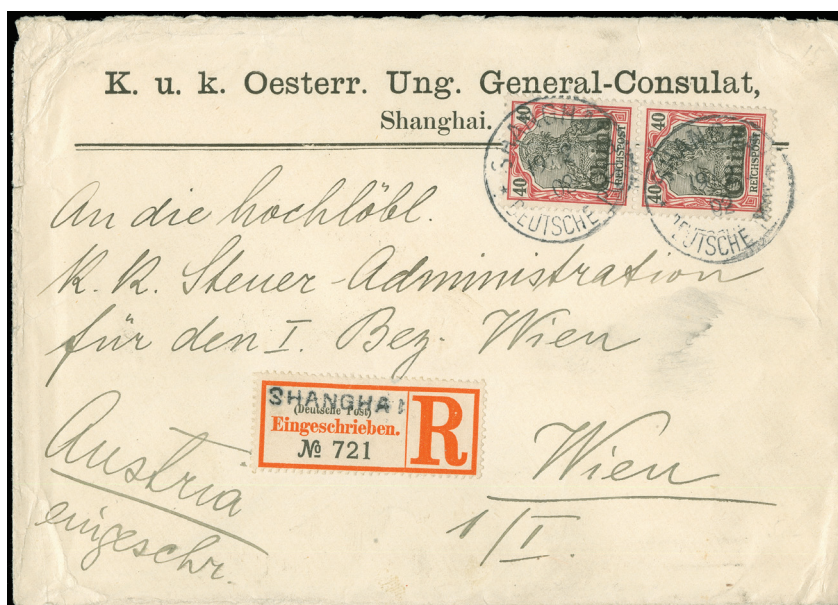 K. u. k. Oesterr. Ung. General-Consulat,
Shanghai.
40 40 China REICHSPOST
40 40 China REICHSPOST
SHANGHAI DEUTSCHE
SHANGHAI DEUTSCHE
An die hochlöbl.
K. K. Steuer-Administration
für den I. Bez. Wien
SHANGHAI
(Deutsche Post)
Eingeschrieben.
№ 721
R
Austria
eingeschr.
Wien
1/I.